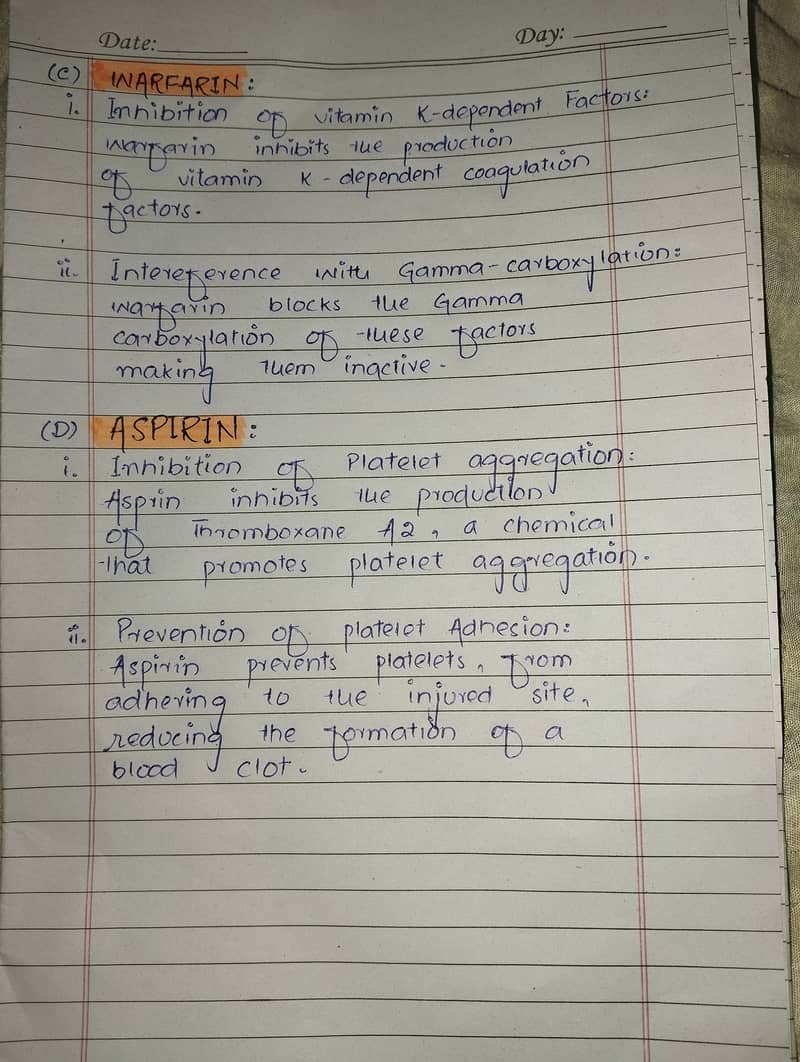 Date: Day:
(C) WARFARIN:
i. Inhibition of vitamin K-dependent Factors:
warfarin inhibits the production
of vitamin K - dependent coagulation
factors.
ii. Intereference with Gamma-carboxylation:
warfarin blocks the Gamma
carboxylation of these factors
making them inactive.
(D) ASPIRIN:
i. Inhibition of Platelet aggregation:
Asprin inhibits the production
of Thromboxane A2, a chemical
that promotes platelet aggregation.
ii. Prevention of platelet Adhesion:
Aspirin prevents platelets, from
adhering to the injured site,
reducing the formation of a
blood clot.